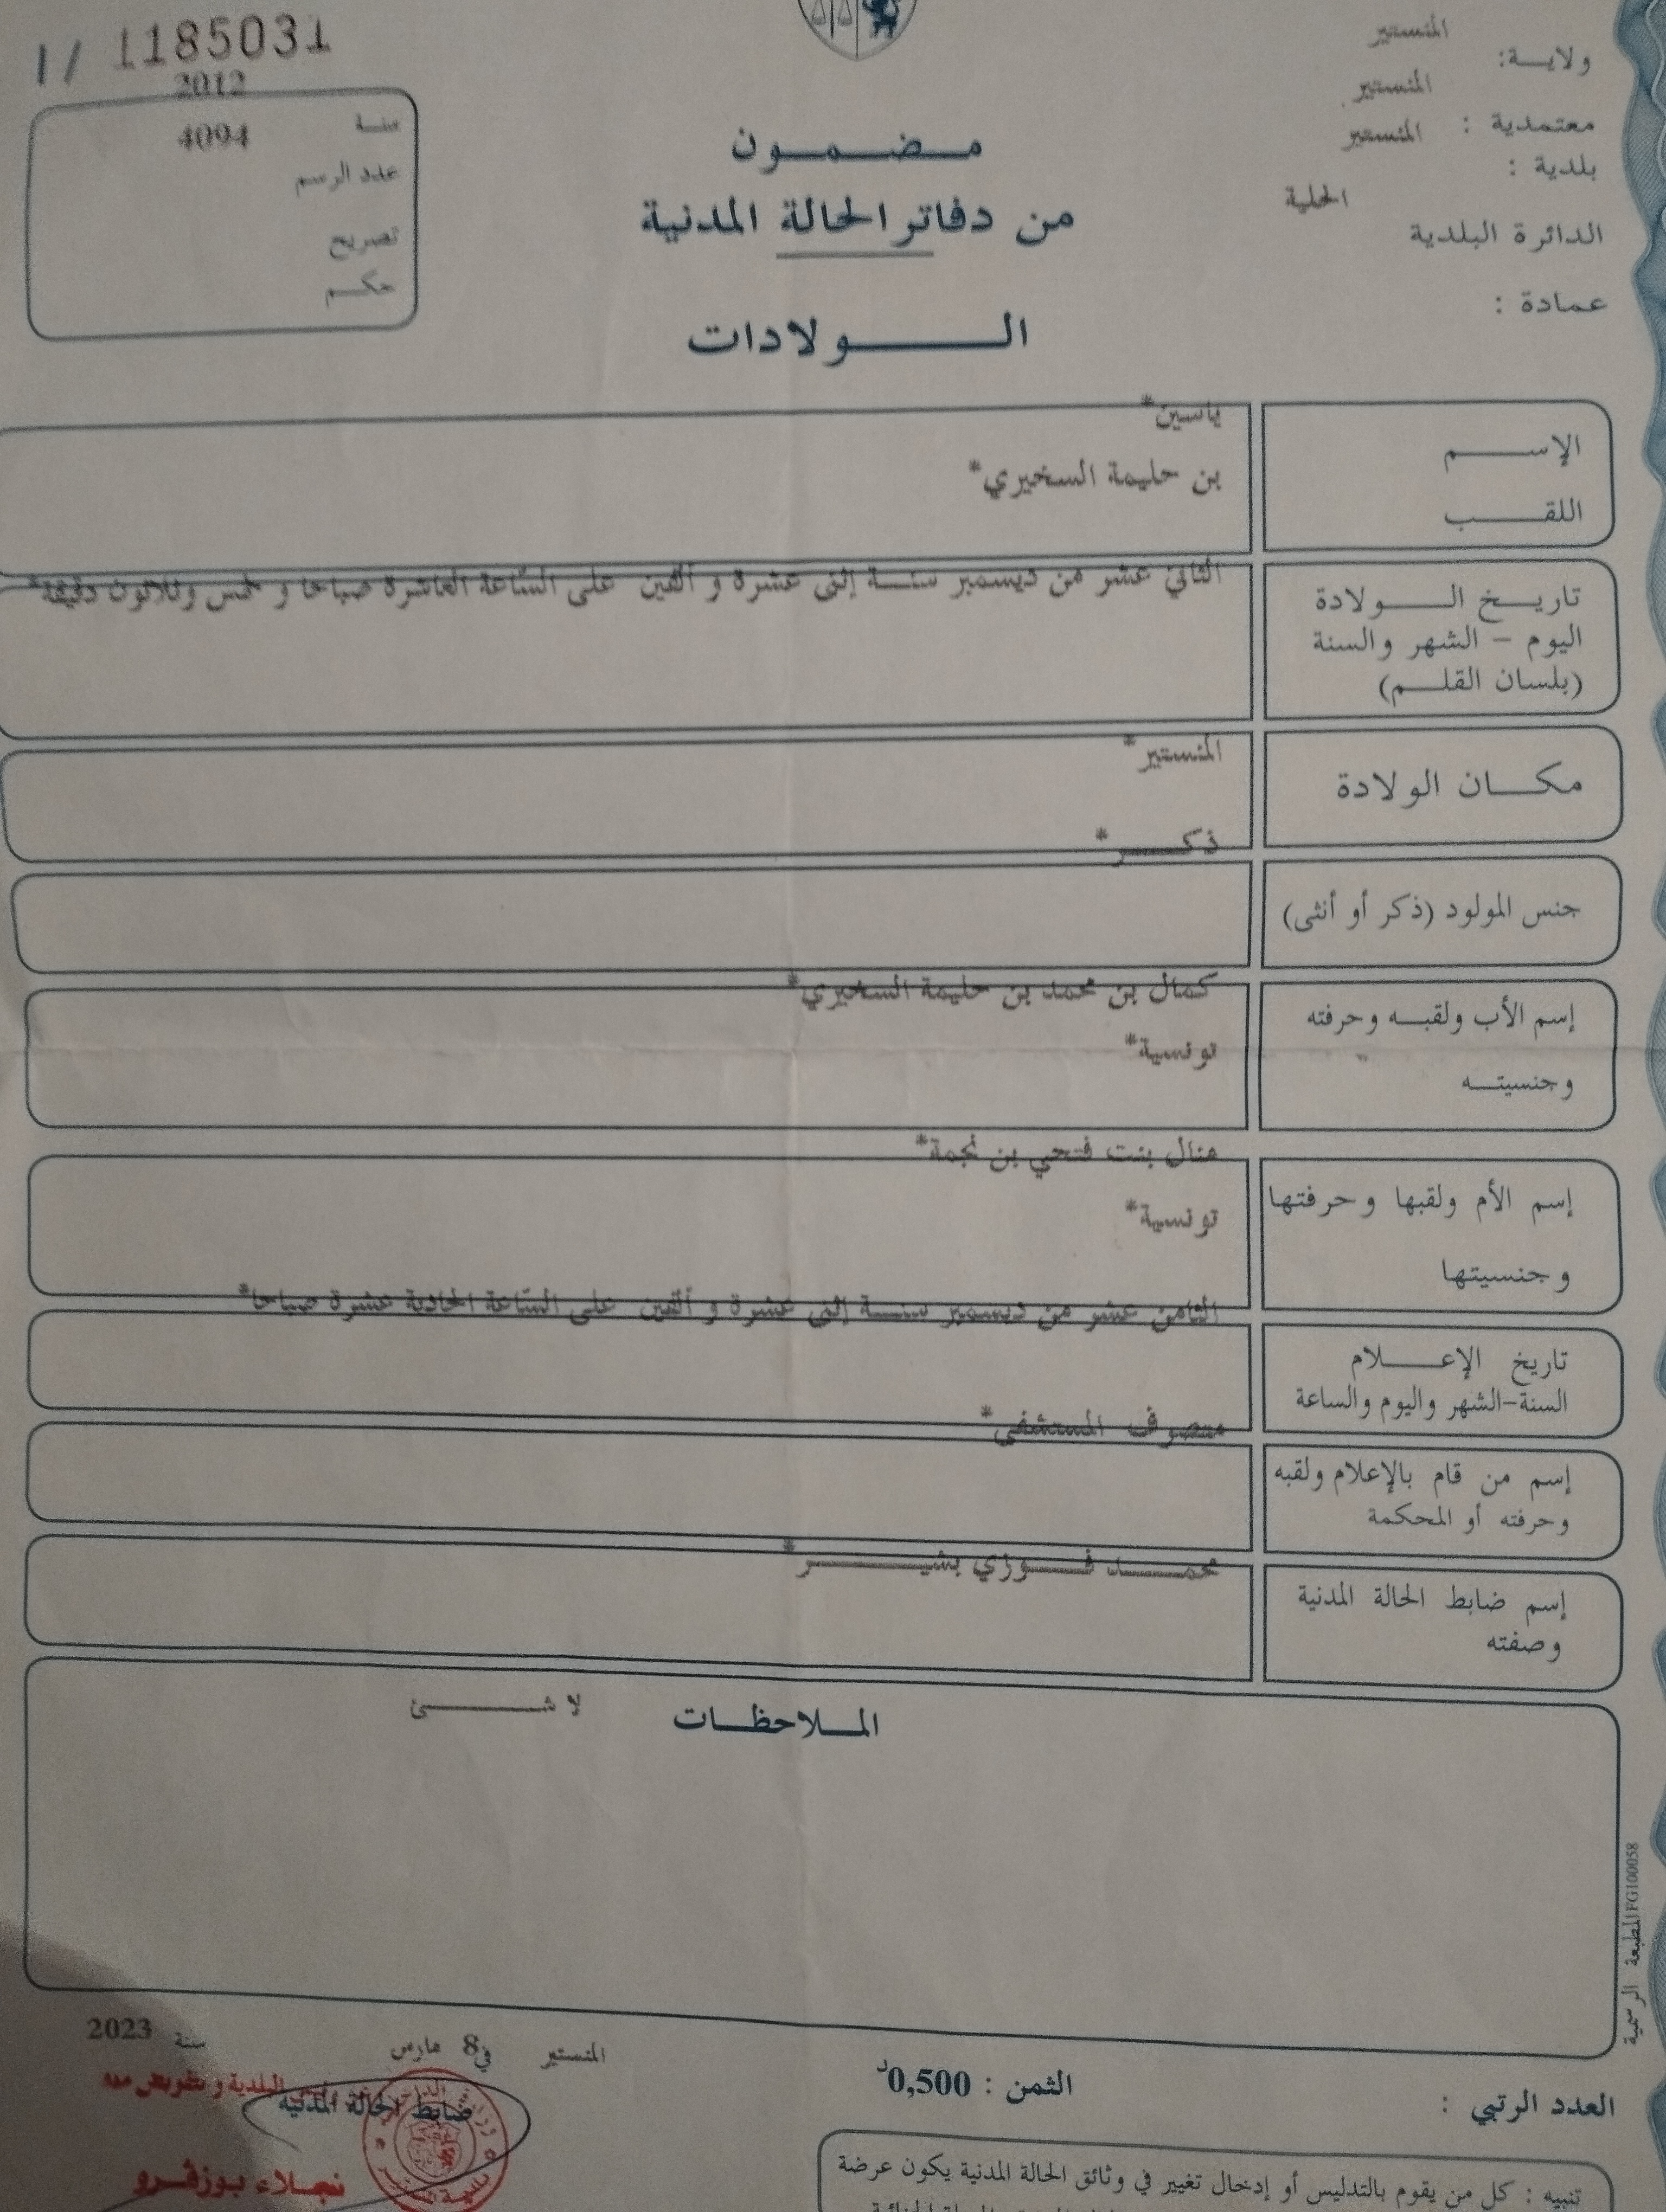 1 / 1185031
المنستير
ولايـــة:
2012
المنستير
معتمدية :
سنـــة
4094
المنستير
بلدية :
مـــضـــمـــون
عدد الرسم
المحلية
الدائرة البلدية
من دفاتر الحالة المدنية
تصريح
حكـــم
عمادة :
الـــــولادات
ياسين*
الإســـــم
بن حليمة السخيري*
اللقـــــب
الثاني عشر من ديسمبر سنـــة إثنى عشرة و ألفين على السّاعة العاشرة صباحا و خمس وثلاثون دقيقة*
تاريـــخ الـــــولادة
اليوم – الشهر والسنة
(بلسان القلـــم)
المنستير*
مكـــان الولادة
ذكـــــر*
جنس المولود (ذكر أو أنثى)
كمال بن محمد بن حليمة السخيري*
إسم الأب ولقبـــه وحرفته
تونسية*
وجنسيتـــه
منال بنت فتحي بن نجمة*
إسم الأم ولقبها وحرفتها
تونسية*
وجنسيتها
الثامن عشر من ديسمبر سنـــة إثنى عشرة و ألفين على السّاعة الحادية عشرة صباحا*
تاريخ الإعـــــلام
السنة-الشهر واليوم والساعة
متصرف المستشفى*
إسم من قام بالإعلام ولقبه
وحرفته أو المحكمة
محمـــــد فـــــوزي بشيـــــر*
إسم ضابط الحالة المدنية
وصفته
الملاحظـــات
لا شـــــئ
المطبعة الرسمية FG100058
المنستير في 8 مارس سنة 2023
البلدية و بتفويض منه
ضابط الحالة المدنية
نجـــلاء بـوزقـــرو
الثمن : 0,500د
العدد الرتبي :
تنبيه : كل من يقوم بالتدليس أو إدخال تغيير في وثائق الحالة المدنية يكون عرضة